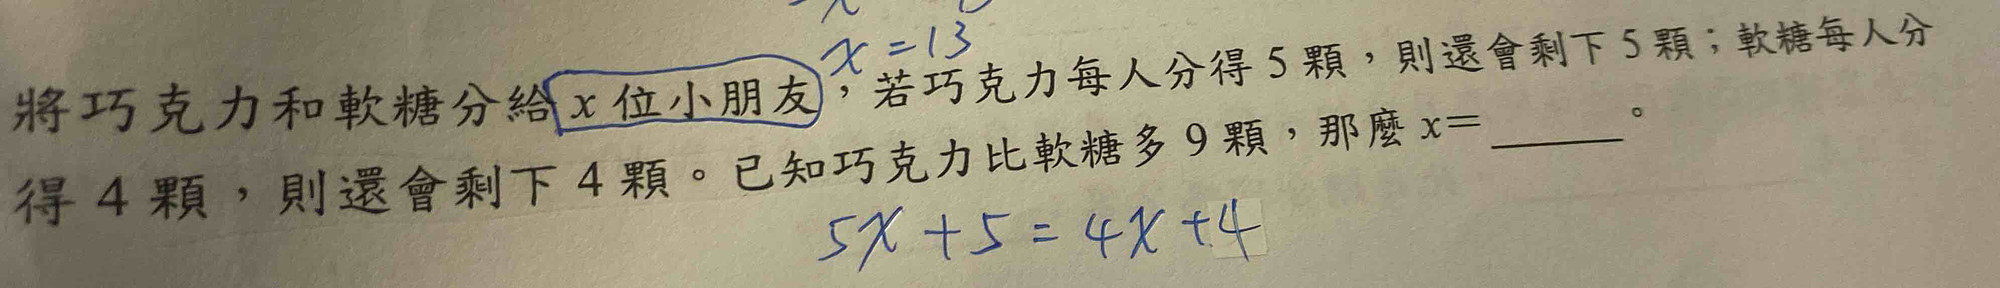 x = 13
將巧克力和軟糖分給 x 位小朋友，若巧克力每人分得 5 顆，則還會剩下 5 顆；軟糖每人分
得 4 顆，則還會剩下 4 顆。已知巧克力比軟糖多 9 顆，那麼 x=______。
5x + 5 = 4x + 4